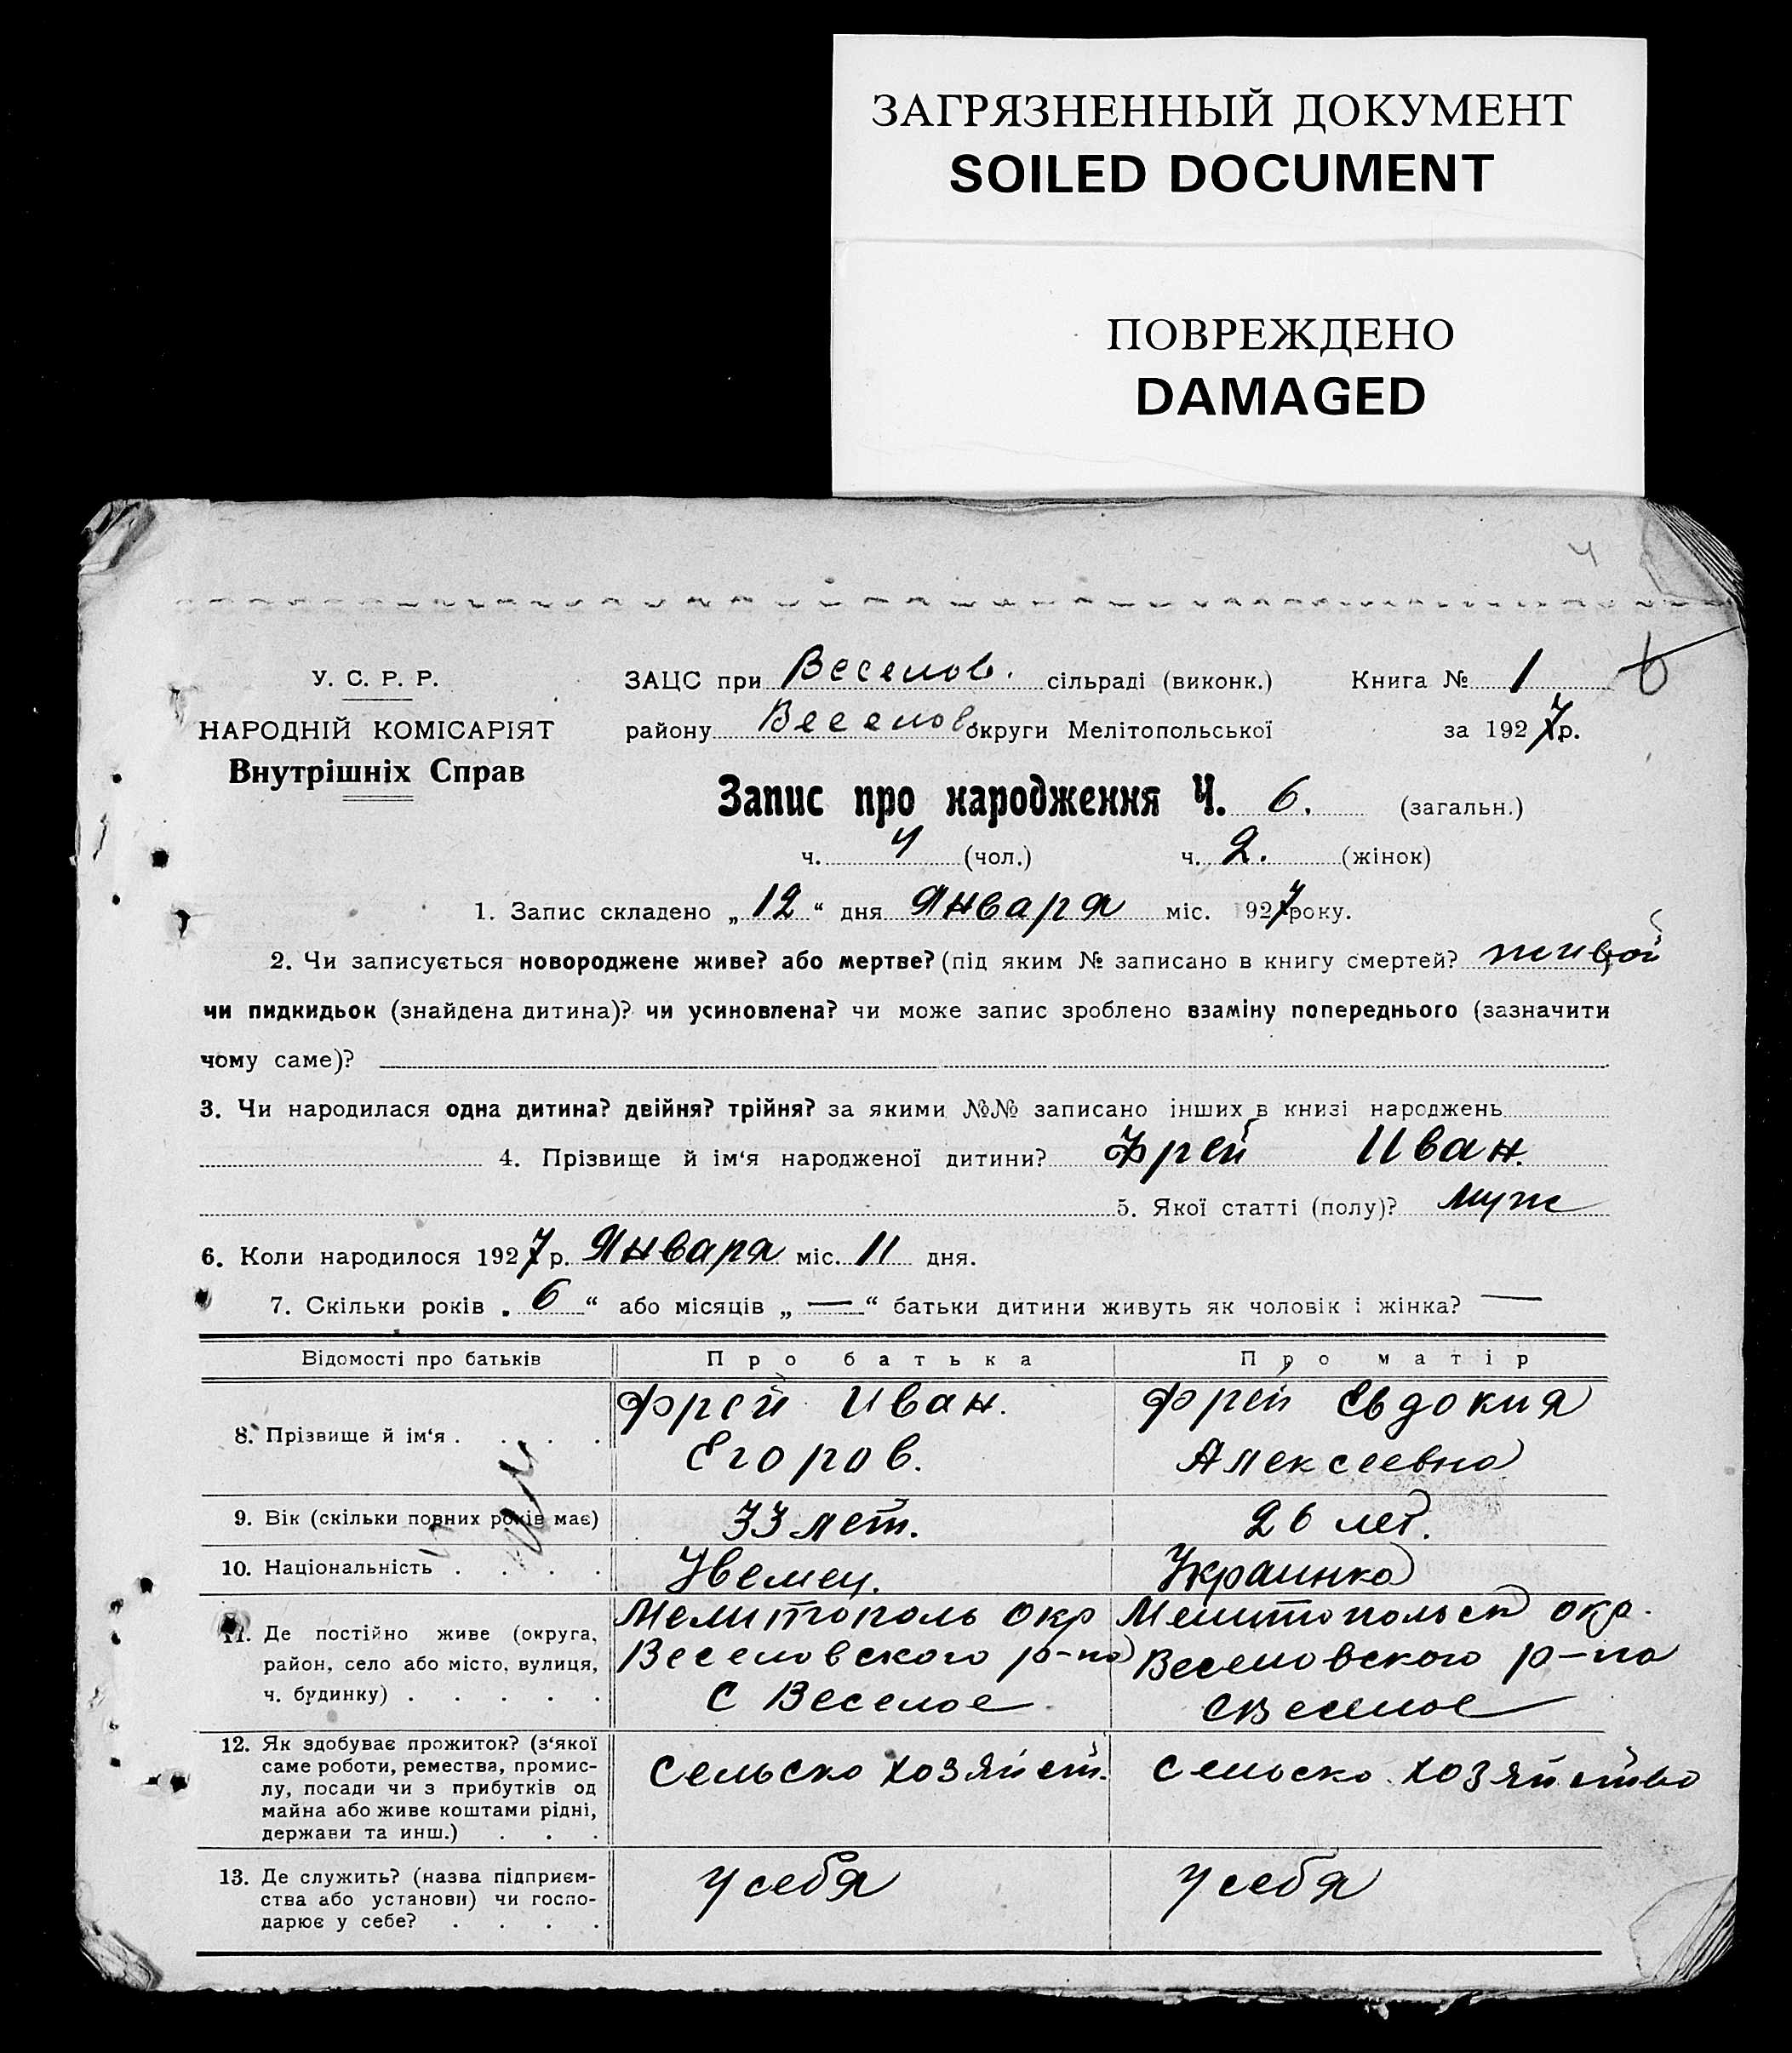 ЗАГРЯЗНЕННЫЙ ДОКУМЕНТ
SOILED DOCUMENT
ПОВРЕЖДЕНО
DAMAGED
У. С. Р. Р.
НАРОДНІЙ КОМІСАРІЯТ
Внутрішніх Справ
ЗАЦС при Веселов. сільраді (виконк.) Книга № 1
району Веселов. округи Мелітопольської за 1927 р.
Запис про народження Ч. 6. (загальн.)
ч. 4 (чол.) ч. 2. (жінок)
1. Запис складено „12“ дня Января міс. 1927 року.
2. Чи записується новороджене живе? або мертве? (під яким № записано в книгу смертей? живой
чи пидкидьок (знайдена дитина)? чи усиновлена? чи може запис зроблено взаміну попереднього (зазначити
чому саме)?
3. Чи народилася одна дитина? двійня? трійня? за якими №№ записано інших в книзі народжень
4. Прізвище й ім‘я народженої дитини? Фрей Иван.
5. Якої статті (полу)? муж
6. Коли народилося 1927 р. Января міс. 11 дня.
7. Скільки років „6“ або місяців „—“ батьки дитини живуть як чоловік і жінка? —
Відомості про батьків Про батька Про матір
8. Прізвище й ім‘я . . . . Фрей Иван. Фрей Евдокия
Егоров. Алексеевна
9. Вік (скільки повних років має) 33 лет. 26 лет.
10. Національність . . . . Немец. Украинка
11. Де постійно живе (округа, район, село або місто, вулиця, ч. будинку) . . . . .
Мелитополь окр Мелитопольск окр.
Веселовского р-на Веселовского р-на
С Веселое С Веселое
12. Як здобуває прожиток? (з‘якої
саме роботи, ремества, промис-
лу, посади чи з прибутків од
майна або живе коштами рідні,
держави та инш.) . . .
Сельско хозяйст. Сельско хозяйство
13. Де служить? (назва підприєм-
ства або установи) чи госпо-
дарює у себе? . . . .
У себя У себя